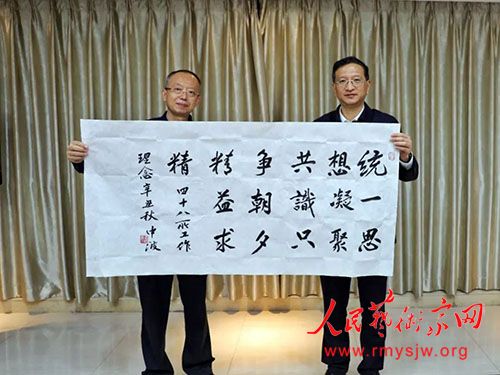 统一思
想凝聚
共識只
争朝夕
精益求
精 四十八所工作
理念辛丑秋
人民藝術家网
www.rmysjw.org